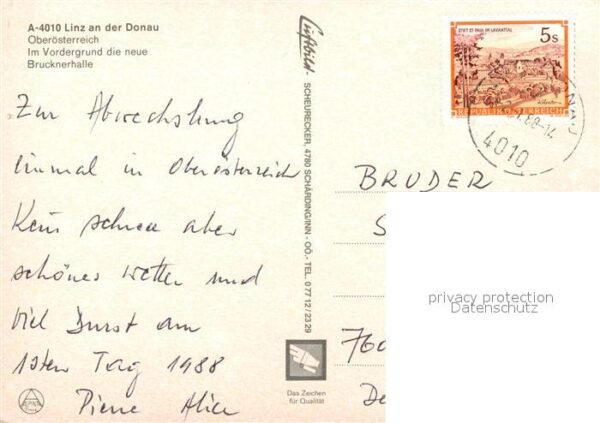 A-4010 Linz an der Donau
Oberösterreich
Im Vordergrund die neue
Brucknerhalle
Zur Abwechslung
einmal in Oberösterreich
Kein schnee aber
schönes Wetter und
viel Durst am
1sten Tag 1988
Pierre Alice
Luftbild - SCHEURECKER, 4780 SCHÄRDING/INN - OÖ. - TEL. 0 77 12 / 23 29
Das Zeichen
für Qualität
STIFT ST. PAUL IM LAVANTTAL
5s
REPUBLIK ÖSTERREICH
88-14
4010
BRUDER
S
760
De
privacy protection
Datenschutz